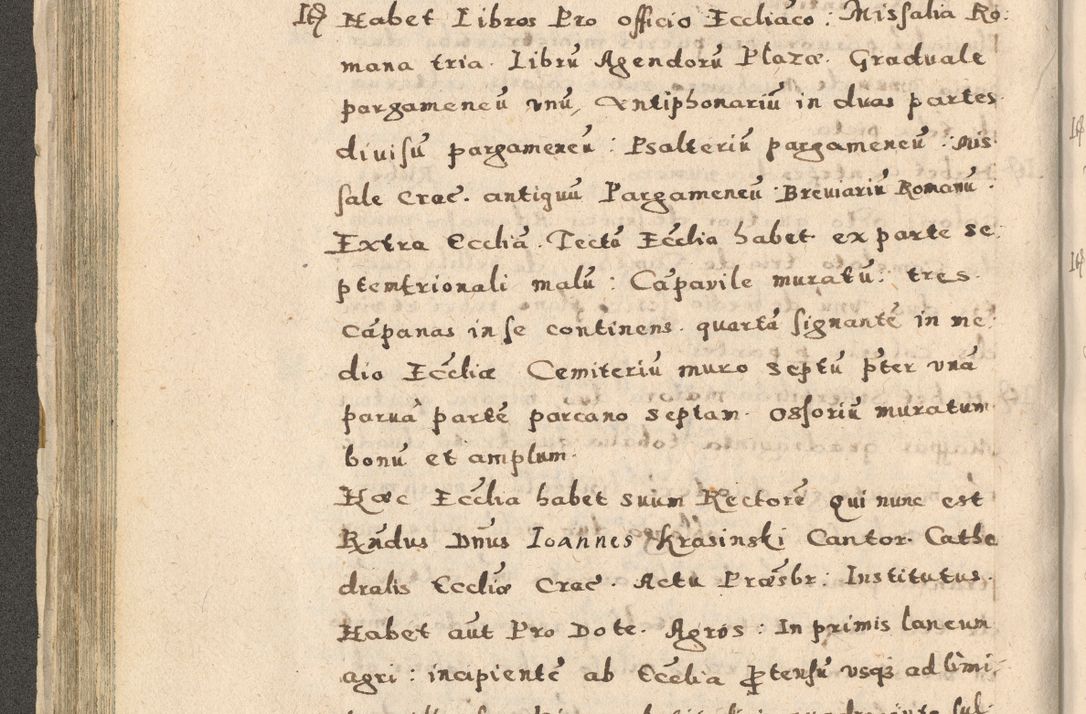 Itē Habet Libros Pro officio Eccliaco: Missalia Ro:
mana tria. Librū Agendorū Plaza. Graduale
pargameneū vnū, Antiphonariū in duas partes
diuisū pargameneū: Psalteriū pargameneū: Mis
sale Crac. antiquū Pargameneū: Breuiariū Romanū.
Extra Eccliā. Tectā Ecclia habet ex parte se:
ptemtrionali malū: Cāpanile muratū: tres
cāpanas in se continens. quartā signantē in me:
dio Eccliæ Cemiteriū muro septū p̄ter vnā
paruā partē parcano septam. Ossoriū muratum
bonū et amplum.
Hæc Ecclia habet suum Rectorē qui nunc est
Rn̄dus Dn̄us Ioannes Krasinski Cantor. Cathe
dralis Eccliæ Crac. Actu Præsbr: Institutus.
Habet aūt Pro Dote. Agros: In primis laneum
agri: incipientē ab Ecclia ꝓtensū vsqꝫ ad limi